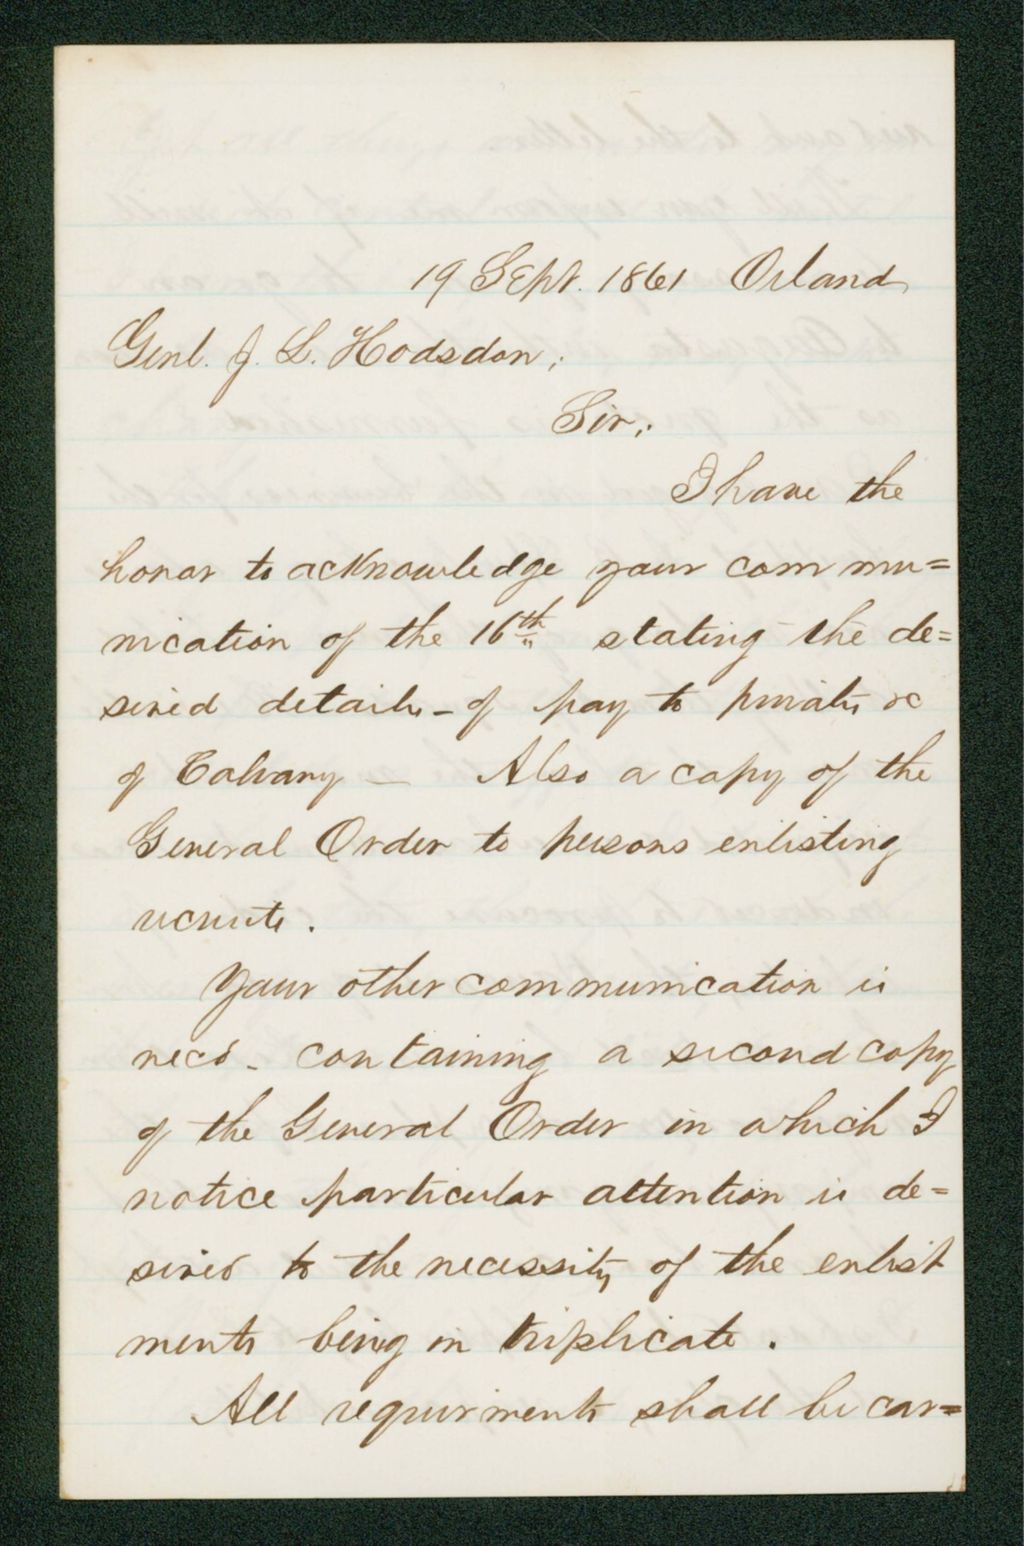 19 Sept. 1861 Orland
Genl. J. L. Hodsdon;
Sir;
I have the
honor to acknowledge your commu=
nication of the 16th stating the de=
sired details - of pay to privates &c
of Calvary — Also a copy of the
General Order to persons enlisting
recruits.
Your other communication is
recd - containing a second copy
of the General Order in which I
notice particular attention is de=
sired to the necessity of the enlist
ments being in triplicate.
All requirments shall be car=